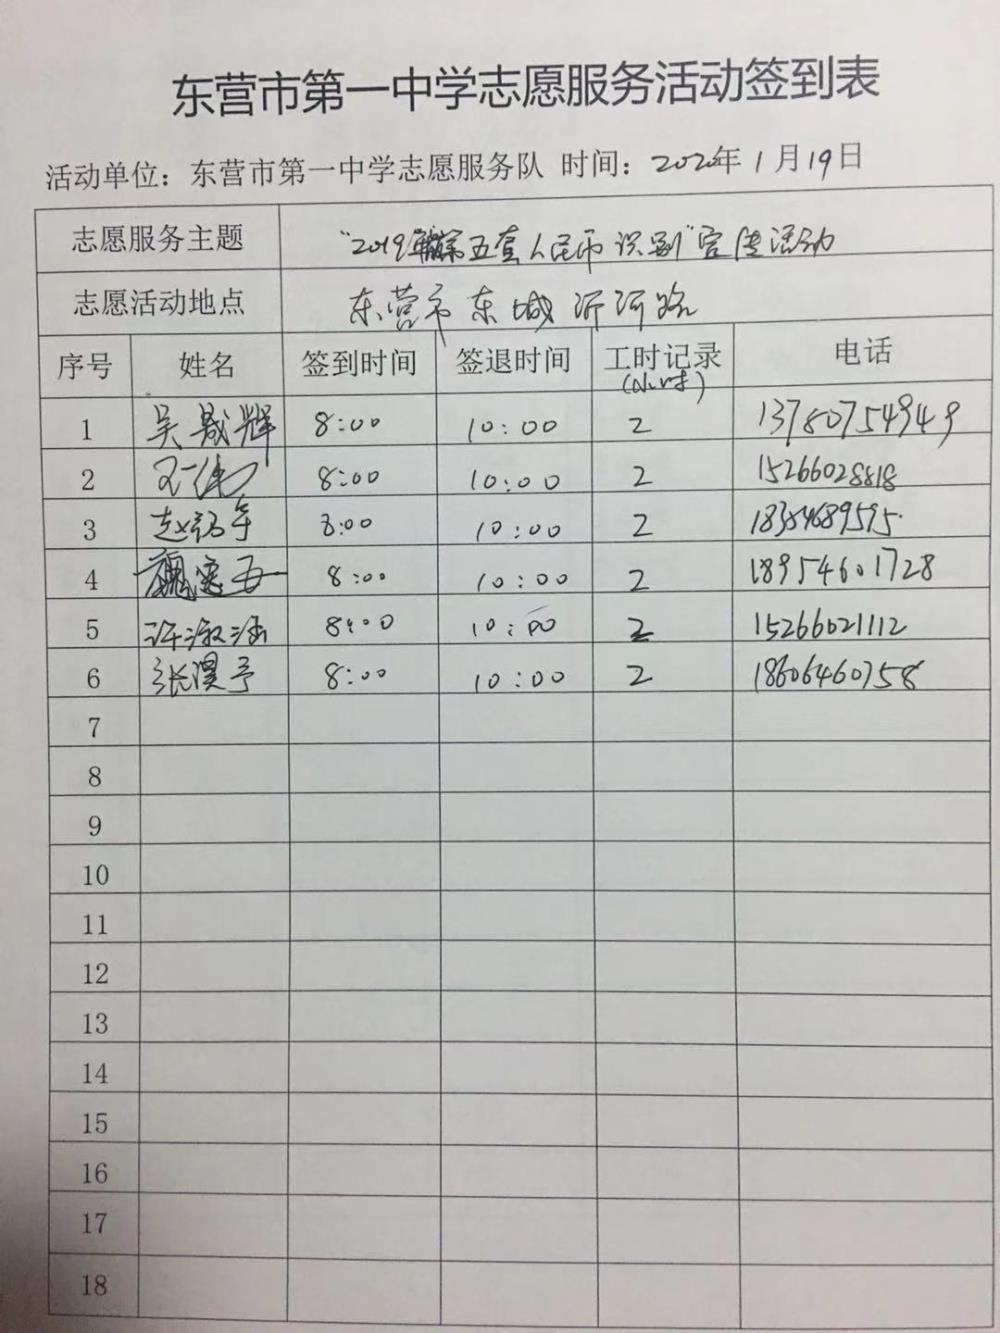 东营市第一中学志愿服务活动签到表
活动单位：东营市第一中学志愿服务队 时间：2020年1月19日
志愿服务主题 "2019年版第五套人民币识别"宣传活动
志愿活动地点 东营市东城沂河路
序号 姓名 签到时间 签退时间 工时记录(小时) 电话
1 吴晟辉 8:00 10:00 2 13780754949
2 王一伟 8:00 10:00 2 15266028818
3 赵 8:00 10:00 2 18354689595
4 魏 8:00 10:00 2 18954601728
5 许淑涵 8:00 10:00 2 15266021112
6 张淏予 8:00 10:00 2 18606460758
7
8
9
10
11
12
13
14
15
16
17
18